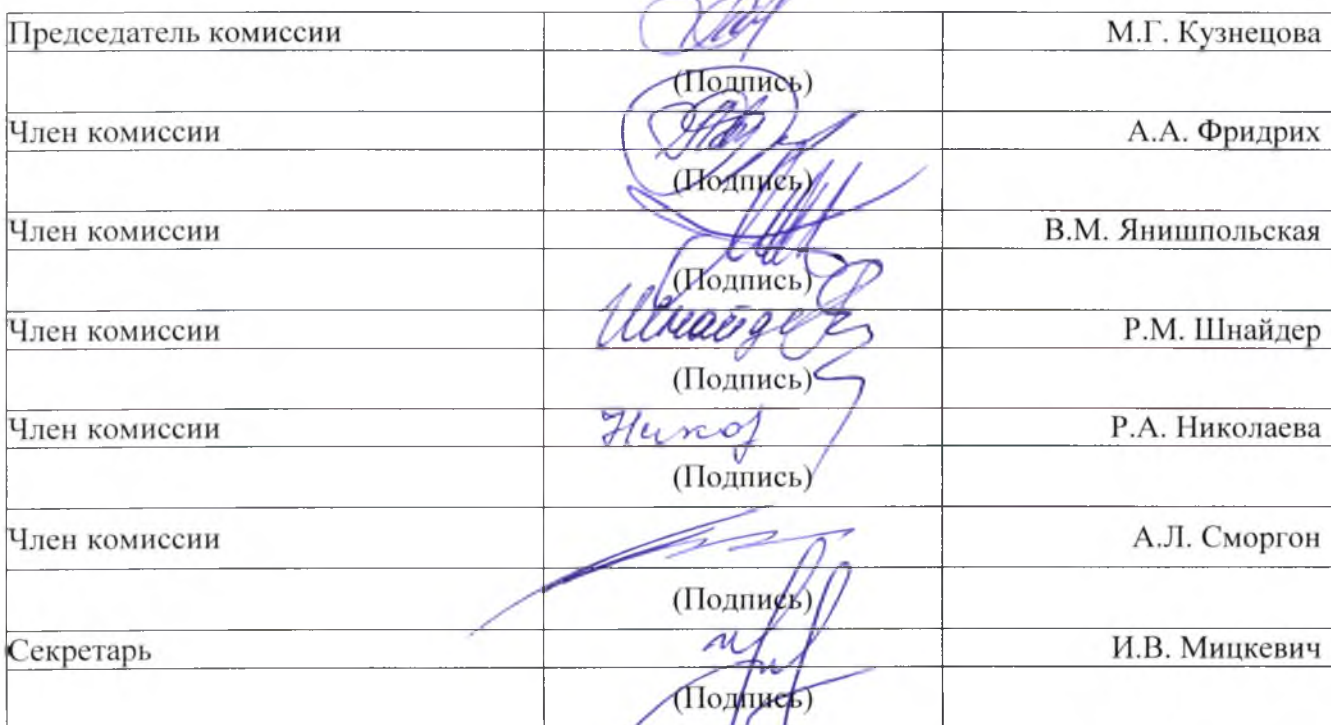 Председатель комиссии М.Г. Кузнецова
(Подпись)
Член комиссии А.А. Фридрих
(Подпись)
Член комиссии В.М. Янишпольская
(Подпись)
Член комиссии Шнайдер Р.М. Шнайдер
(Подпись)
Член комиссии Р.А. Николаева
(Подпись)
Член комиссии А.Л. Сморгон
(Подпись)
Секретарь И.В. Мицкевич
(Подпись)